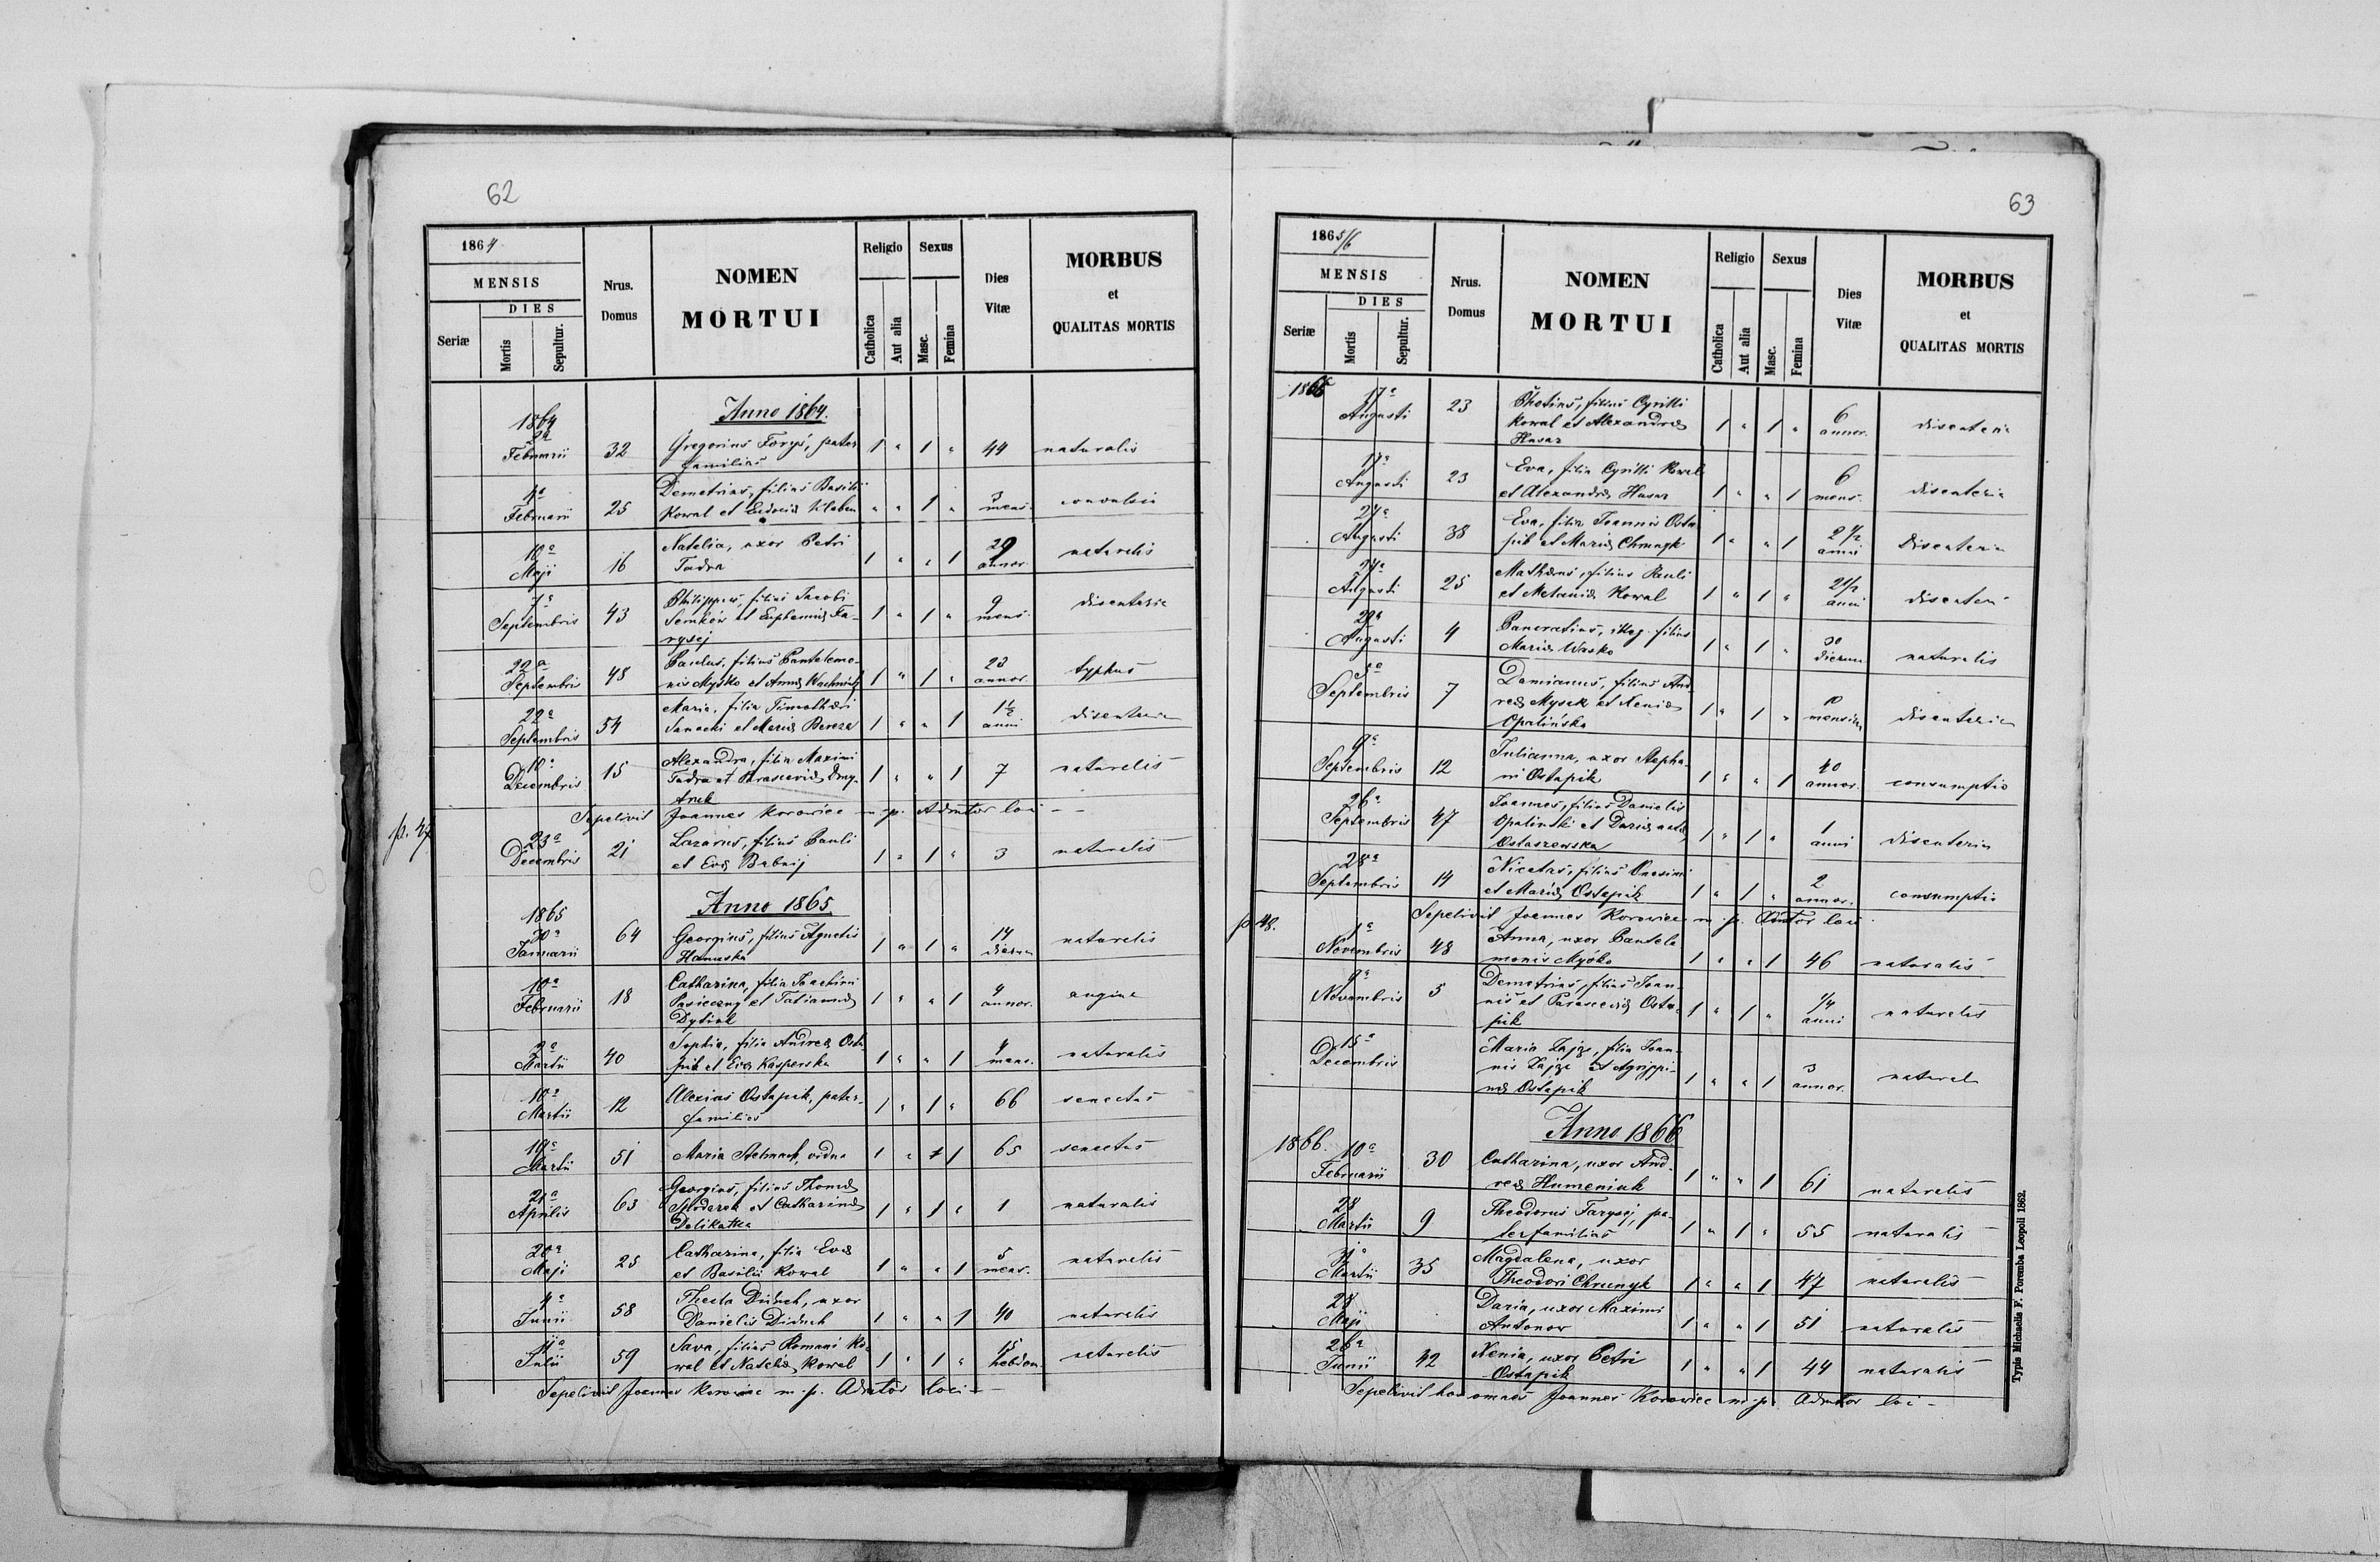 62
1864
MENSIS
DIES
Seriæ
Mortis
Sepultur.
Nrus.
Domus
NOMEN
MORTUI
Religio
Catholica
Aut alia
Sexus
Masc.
Femina
Dies
Vitæ
MORBUS
et
QUALITAS MORTIS
Anno 1864.
1864
Februarii 32 Gregorius pater 1 " 1 " 44 naturalis
familias
4a
Februarii 25 Demetrius, filius Basilii " " 1 " 3 mens. convulsio
Kowal et
10a
Maji 16 Natalia, uxor Petri 1 " " 1 29 annor. naturalis
Tadra
7a
Septembris 43 Philippus, filius Jacobi 1 " 1 " 9 mens. disenteria
Semkow et Euphemiæ Fa-
rysej
22a
Septembris 48 Paulus, filius Pantelemo- 1 " 1 " 23 annor. typhus
nis Myśko et Annæ
22a
Septembris 54 Maria, filia Timothæi 1 " " 1 1½ anni disenteria
Sanocki et Mariæ
10a
Decembris 15 Alexandra, filia Maximi 1 " " 1 7 naturalis
Tadra et Parascevia
Sepelivit Joannes Korowiec m. p. Admtor loci
p. 47
23a
Decembris 21 Lazarus, filius Pauli 1 " 1 " 3 naturalis
et Evæ Babnij
Anno 1865
1865
30a
Januarii 64 Georgius, filius Agnetis 1 " 1 " 14 dierum naturalis
Hanuska
10a
Februarii 18 Catharina, filia Joachimi 1 " " 1 4 annor. angina
Pasieczny et Tatianæ
Dydiuk
2a
Martii 40 Sophia, filia Andreæ Osta- 1 " " 1 4 mens. naturalis
pik et Evæ Kasperska
10a
Martii 12 Alexius Ostapik, pater- 1 " 1 " 66 senectus
familias
Martii 51 Maria Stelmach, vidua 1 " 1 65 senectus
21a
Aprilis 63 Georgius, filius Thomæ 1 " 1 " 1 naturalis
et Catharinæ
Delikatka
20a
Maji 25 Catharina, filia Evæ 1 " " 1 5 mens. naturalis
et Basilii Kowal
4a
Junii 58 Thecla Diduch, uxor 1 " " 1 40 naturalis
Danielis Diduch
11a
Julii 59 Sava, filius Romani Ko- 1 " 1 " 15 hebdom. naturalis
wal et Nataliæ Kowal
Sepelivit Joannes Korowiec m. p. Admtor loci
63
1865/6
MENSIS
DIES
Seriæ
Mortis
Sepultur.
Nrus.
Domus
NOMEN
MORTUI
Religio
Catholica
Aut alia
Sexus
Masc.
Femina
Dies
Vitæ
MORBUS
et
QUALITAS MORTIS
1865
17a
Augusti 23 Photius, filius Cyrilli 1 " 1 " 6 annor. disenteria
Kowal et Alexandræ
Husar
17a
Augusti 23 Eva, filia Cyrilli Kowal 1 " " 1 6 mens. disenteria
et Alexandræ Husar
24a
Augusti 38 Eva, filia Joannis Osta- 1 " " 1 2½ anni disenteria
pik et Mariæ Chrunyk
Augusti 25 Mathæus, filius Pauli 1 " 1 " 2½ anni disenteri
et Melaniæ Kowal
29a
Augusti 4 Pancratius, illeg. filius 1 " 1 " 30 dierum naturalis
Mariæ Wasko
5a
Septembris 7 Damianus, filius And- 1 " 1 " mensium disenteria
reæ Mysak et Xeniæ
Opalińska
9a
Septembris 12 Julianna, uxor Stepha- 1 " " 1 40 annor. consumptio
ni Ostapik
26a
Septembris 47 Joannes, filius Danielis 1 " 1 " 1 anni disenteria
Opalinski et Dariæ natæ
Ostaszewska
28a
Septembris 14 Nicetas, filius Onesimi 1 " 1 " 2 annor. consumptio
et Mariæ Ostapik
Sepelivit Joannes Korowiec m. p. Admtor loci
p. 48.
1a
Novembris 48 Anna, uxor Pantele- 1 " " 1 46 naturalis
monis Myśko
9a
Novembris 5 Demetrius, filius Joan- 1 " 1 " ¼ anni naturalis
nis et Parasceviæ Osta-
pik
15a
Decembris Maria Zaj̨c, filia Joan- 1 " " 1 3 annor. natural
nis et Agrippi-
næ Ostapik
Anno 1866
1866. 10a
Februarii 30 Catharina, uxor And- 1 " " 1 61 naturalis
reæ Humeniuk
28
Martii 9 Theodorus Farysej, pa- 1 " 1 " 55 naturalis
terfamilias
31a
Martii 35 Magdalena, uxor 1 " " 1 47 naturalis
Theodori Chrunyk
28
Maji Daria, uxor Maximi 1 " " 1 51 naturalis
Antonow
26a
Junii 42 Xenia, uxor Petri 1 " " 1 44 naturalis
Ostapik
Sepelivit hos omnes Joannes Korowiec m. p. Admtor loci
Typis Michaelis F. Poremba Leopoli 1862.